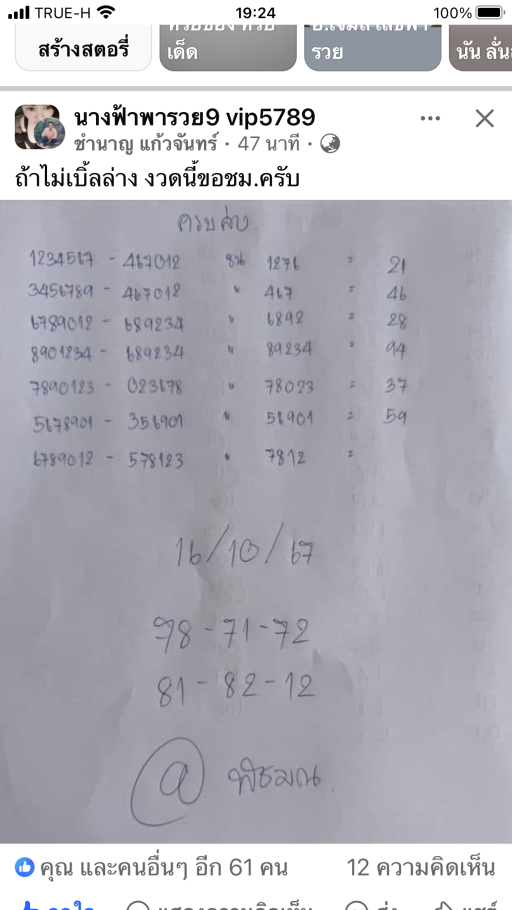 TRUE-H 19:24 100%
สร้างสตอรี่
เด็ด
รวย
นางฟ้าพารวย9 vip5789
ชำนาญ แก้วจันทร์ · 47 นาที ·
ถ้าไม่เบิ้ลล่าง งวดนี้ขอชม.ครับ
ครบสบ.
1234567 - 467012 ชน 1276 = 21
3456789 - 467012 " 467 = 46
6789012 - 689234 " 6892 = 28
8901234 - 689234 " 89234 = 94
7890123 - 023678 " 78023 = 37
5678901 - 356901 " 56901 = 59
6789012 - 578123 " 7812 =
16/10/67
78-71-72
81-82-12
@ พิธมณ.
คุณ และคนอื่นๆ อีก 61 คน 12 ความคิดเห็น